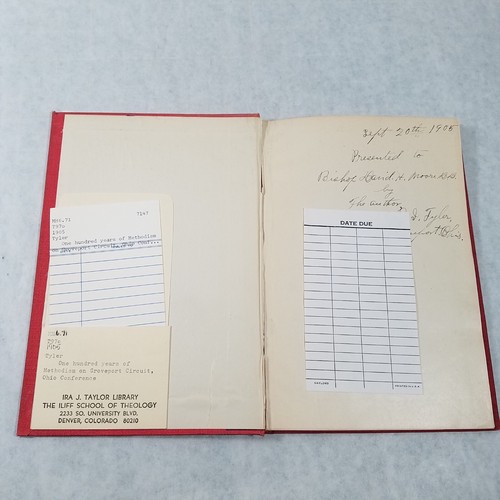 286.71
T97o
1905
Tyler
One hundred years of Methodism
on Groveport Circuit, Ohio Conf...
6.71
1905
Tyler
One hundred years of
Methodism on Groveport Circuit,
Ohio Conference
IRA J. TAYLOR LIBRARY
THE ILIFF SCHOOL OF THEOLOGY
2233 SO. UNIVERSITY BLVD.
DENVER, COLORADO 80210
Sept 20th 1905
Presented to
Bishop David H. Moore D.D.
by
The author
Tyler,
Ohio.
DATE DUE
GAYLORD
PRINTED IN U.S.A.